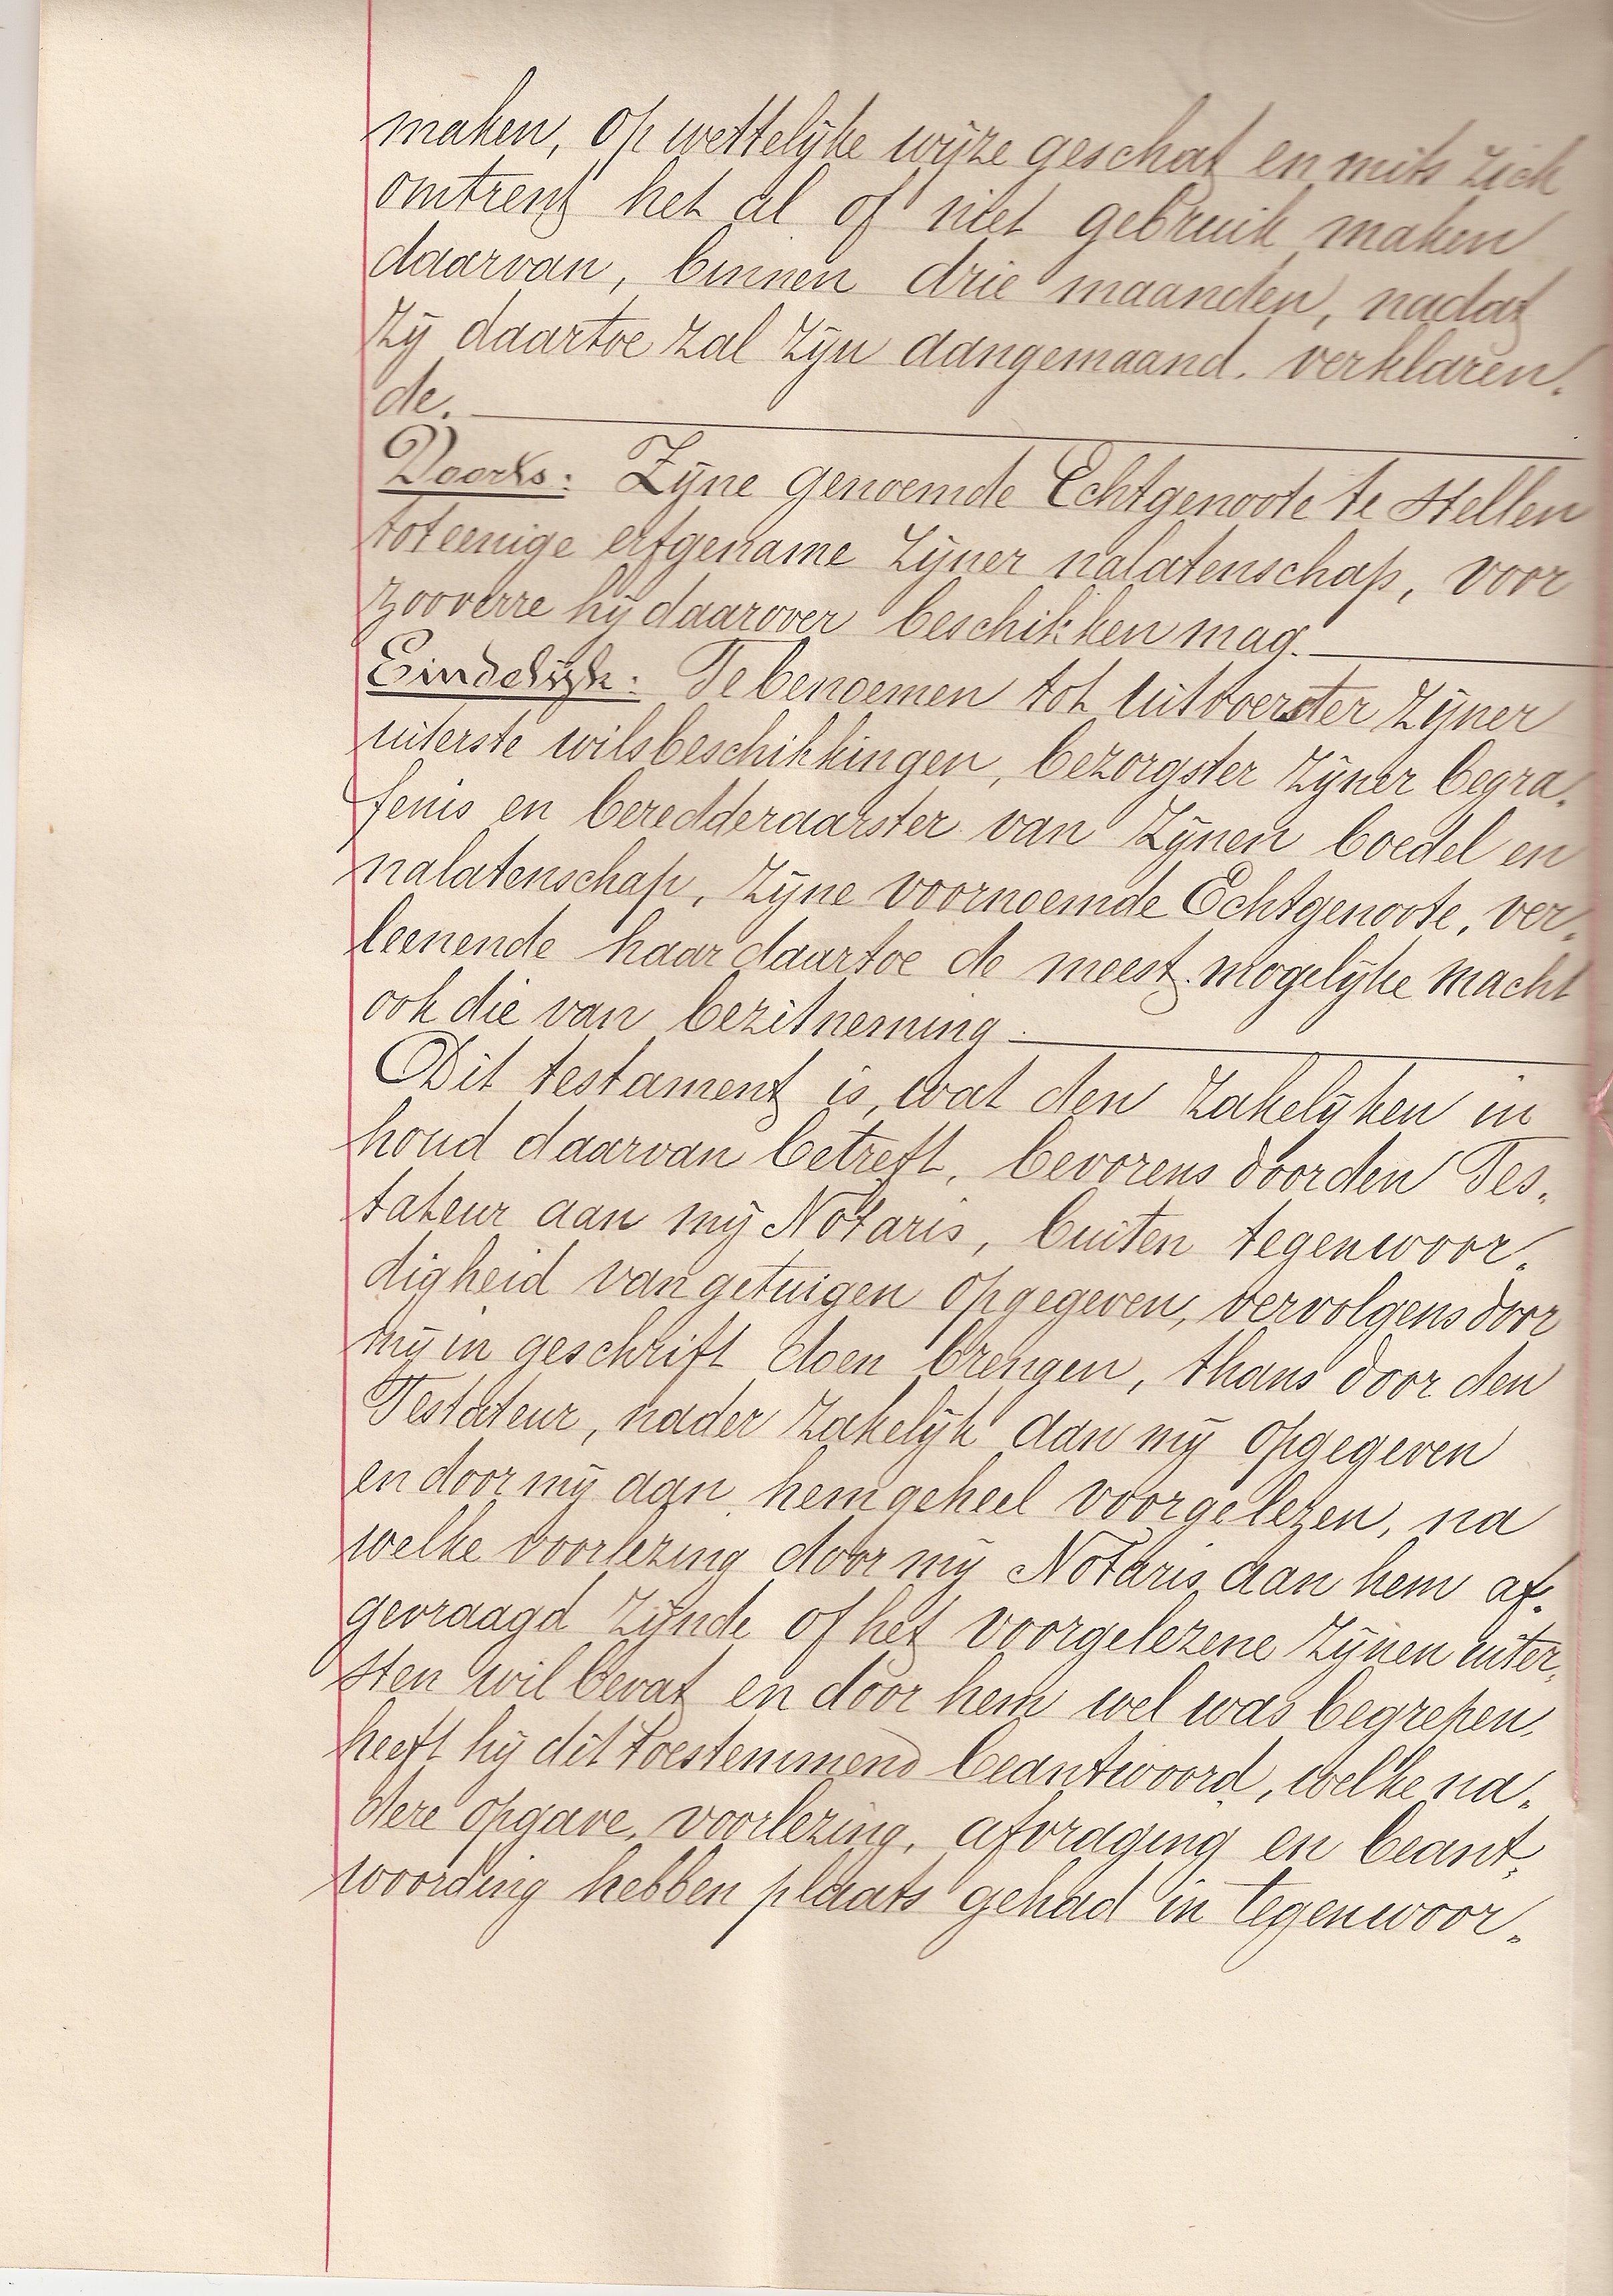 maken, op wettelijke wijze geschat en mits zich
omtrent het al of niet gebruik maken
daarvan, binnen drie maanden, nadat
zij daartoe zal zijn aangemaand, verklaren-
de.
Voorts: Zijne genoemde Echtgenoote te stellen
tot eenige erfgename zijner nalatenschap, voor
zooverre hij daarover beschikken mag.
Eindelijk: Te benoemen tot uitvoerster zijner
uiterste wilsbeschikkingen, bezorgster zijner begra-
fenis en beredderaarster van zijnen boedel en
nalatenschap, zijne voornoemde Echtgenoote, ver-
leenende haar daartoe de meest mogelijke macht
ook die van bezitneming.
Dit testament is, wat den zakelijken in
houd daarvan betreft, bevorens door den Tes-
tateur aan mij Notaris, buiten tegenwoor-
digheid van getuigen opgegeven, vervolgens door
mij in geschrift doen brengen, thans door den
Testateur, nader zakelijk aan mij opgegeven
en door mij aan hem geheel voorgelezen, na
welke voorlezing door mij Notaris aan hem af-
gevraagd zijnde of het voorgelezene zijnen uiter-
sten wil bevat en door hem wel was begrepen,
heeft hij dit toestemmend beantwoord, welke na-
dere opgave, voorlezing, afvraging en beant-
woording hebben plaats gehad in tegenwoor-